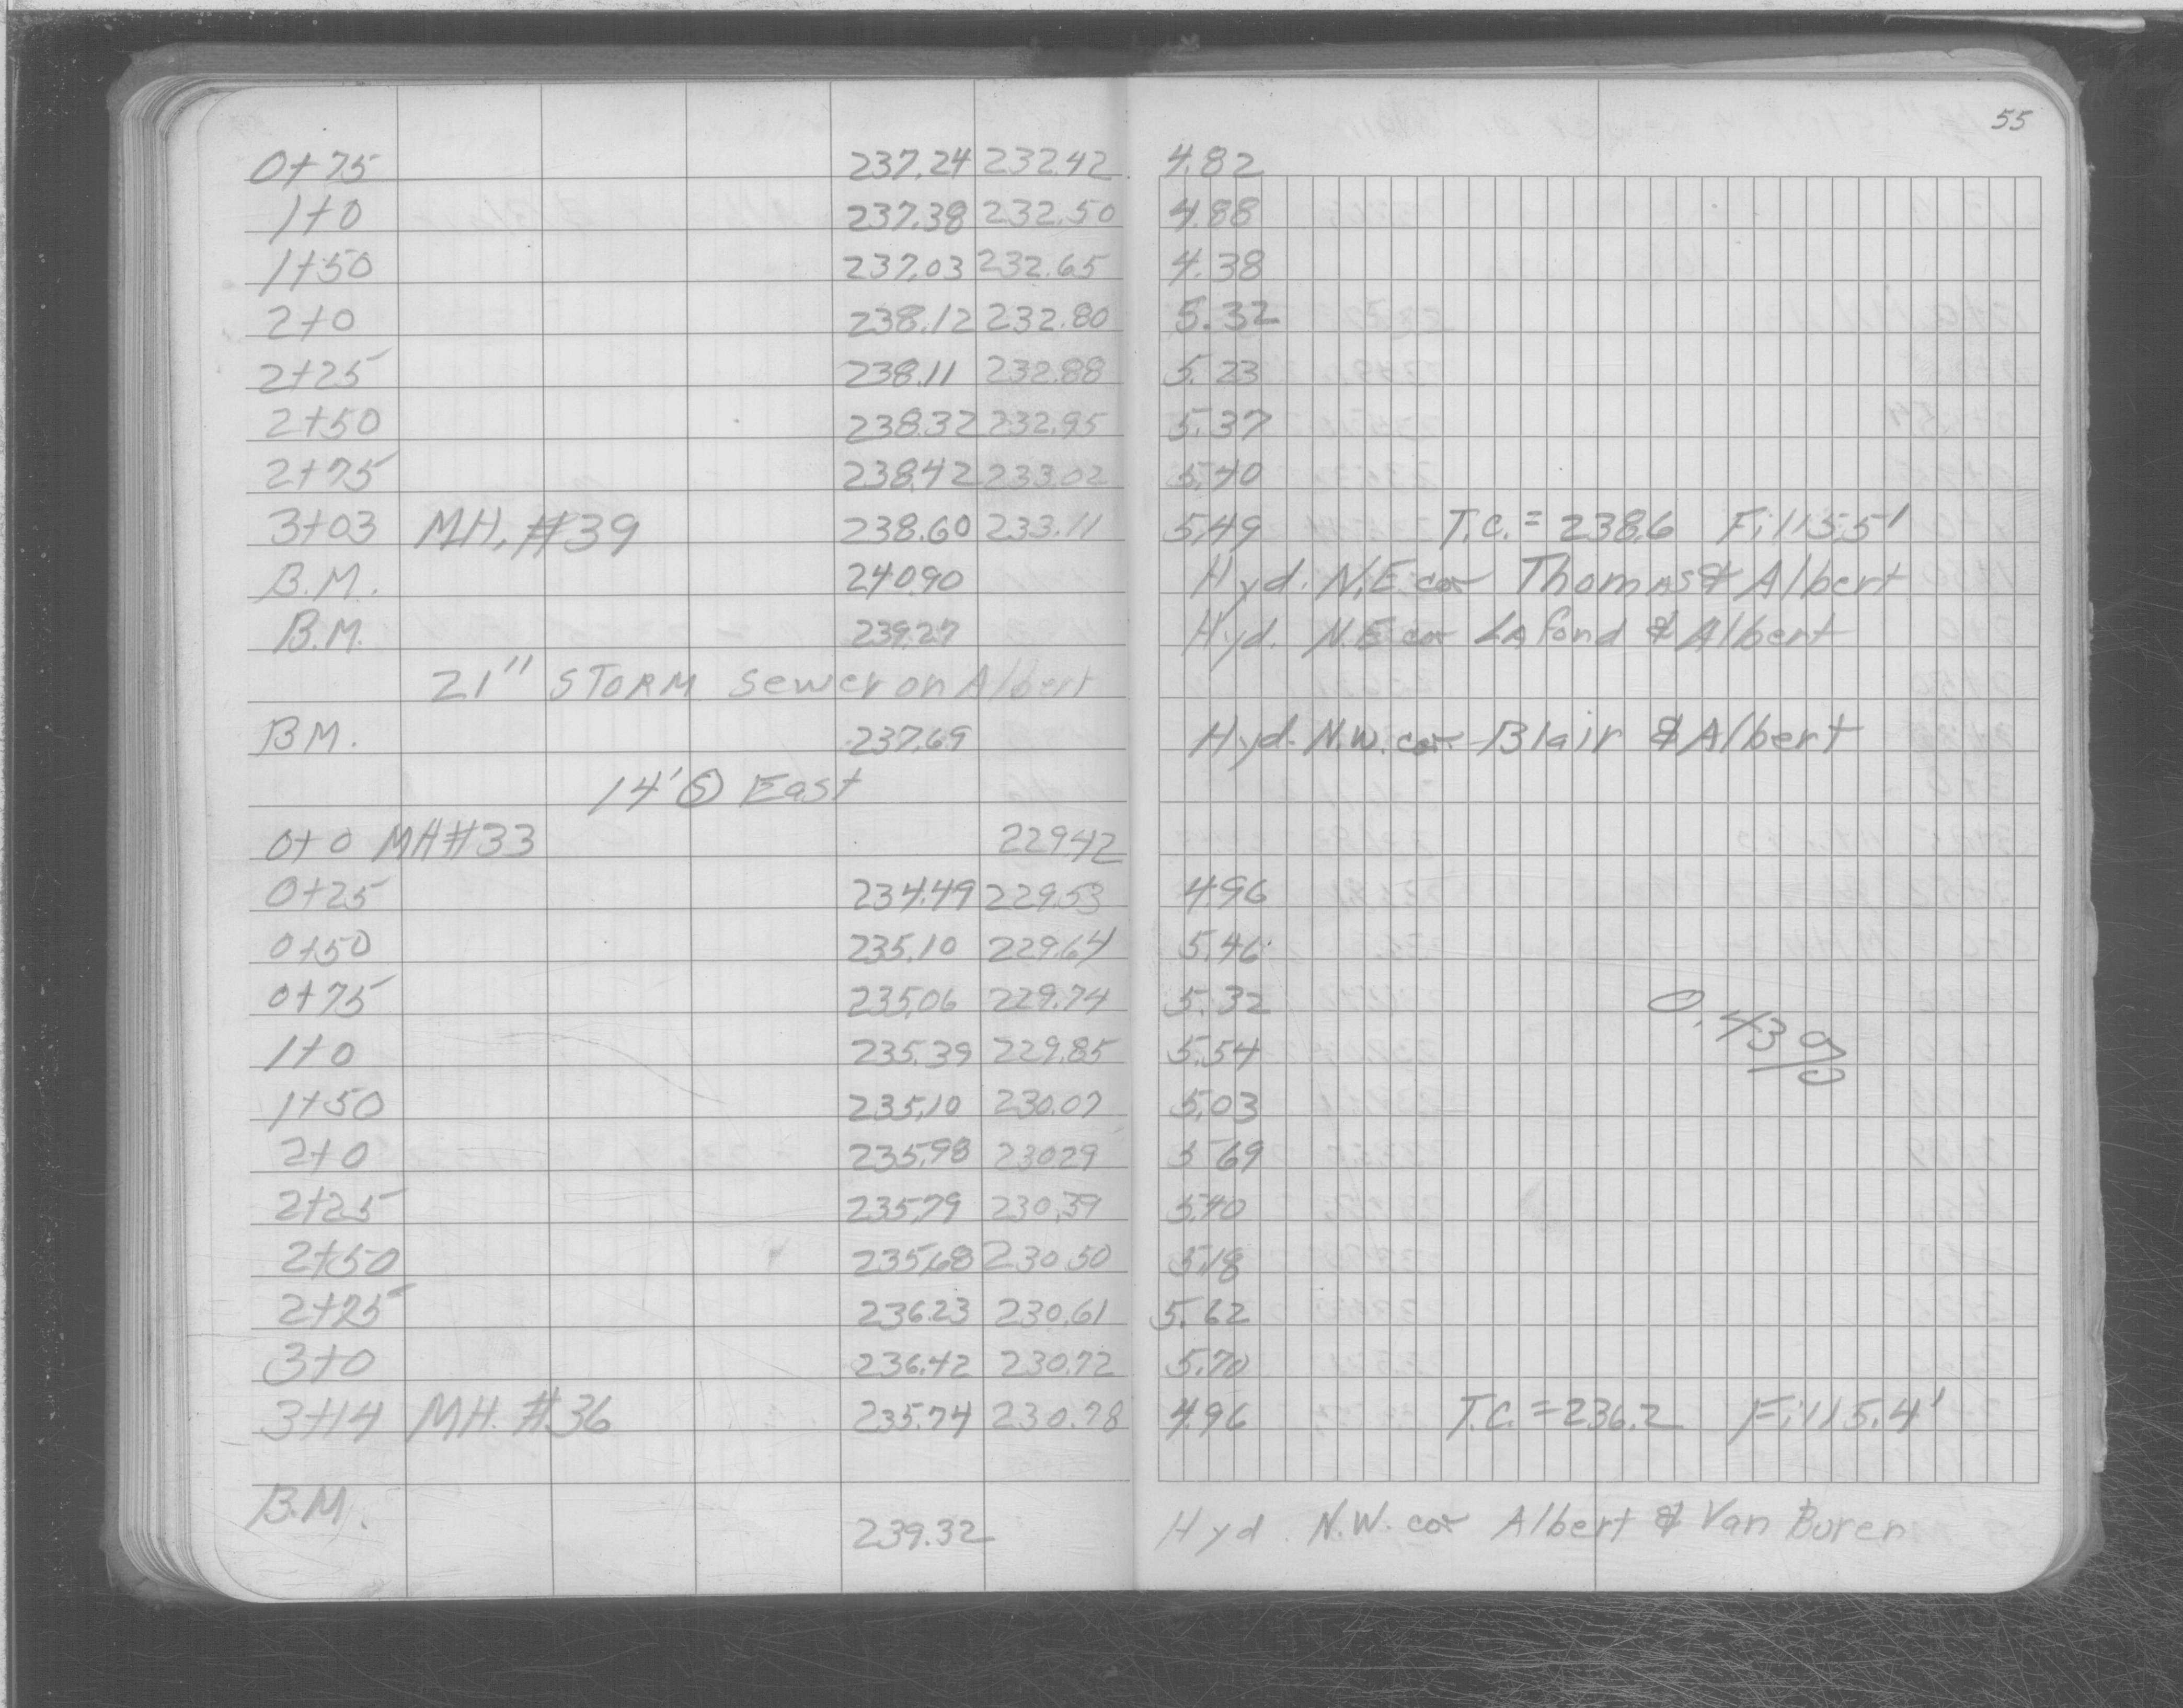 55
0+75 237.24 232.42 4.82
1+0 237.38 232.50 4.88
1+50 237.03 232.65 4.38
2+0 238.12 232.80 5.32
2+25 238.11 232.88 5.23
2+50 238.32 232.95 5.37
2+75 238.42 233.02 5.40
3+03 MH. #39 238.60 233.11 5.49 T.C. = 238.6 Fill 5.5'
B.M. 240.90 Hyd. N.E. cor Thomas & Albert
B.M. 239.27 Hyd. N.E. cor Lafond & Albert
21" STORM Sewer on Albert
B.M. 237.69 Hyd. N.W. cor Blair & Albert
14' Ⓢ East
0+0 MH #33 229.42
0+25 234.49 229.53 4.96
0+50 235.10 229.64 5.46
0+75 235.06 229.74 5.32 0.43%
1+0 235.39 229.85 5.54
1+50 235.10 230.07 5.03
2+0 235.98 230.29 5.69
2+25 235.79 230.39 5.40
2+50 235.68 230.50 5.18
2+75 236.23 230.61 5.62
3+0 236.42 230.72 5.70
3+14 MH. #36 235.74 230.78 4.96 T.C. = 236.2 Fill 5.4'
B.M. 239.32 Hyd. N.W. cor Albert & Van Buren